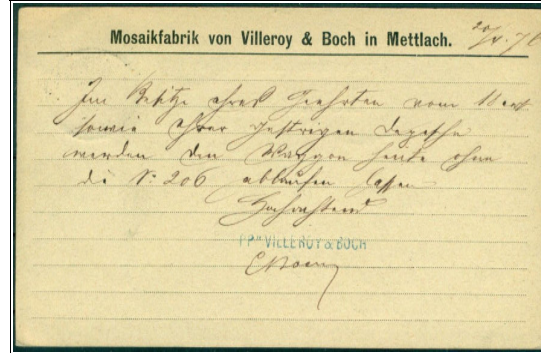 Mosaikfabrik von Villeroy & Boch in Mettlach.
Im Besitze Ihres Geehrten vom 18 crt
sowie Ihrer gestrigen Depesche
werden den Waggon heute ohne
die No 206 ablaufen lassen
Hochachtend
PPª VILLEROY & BOCH